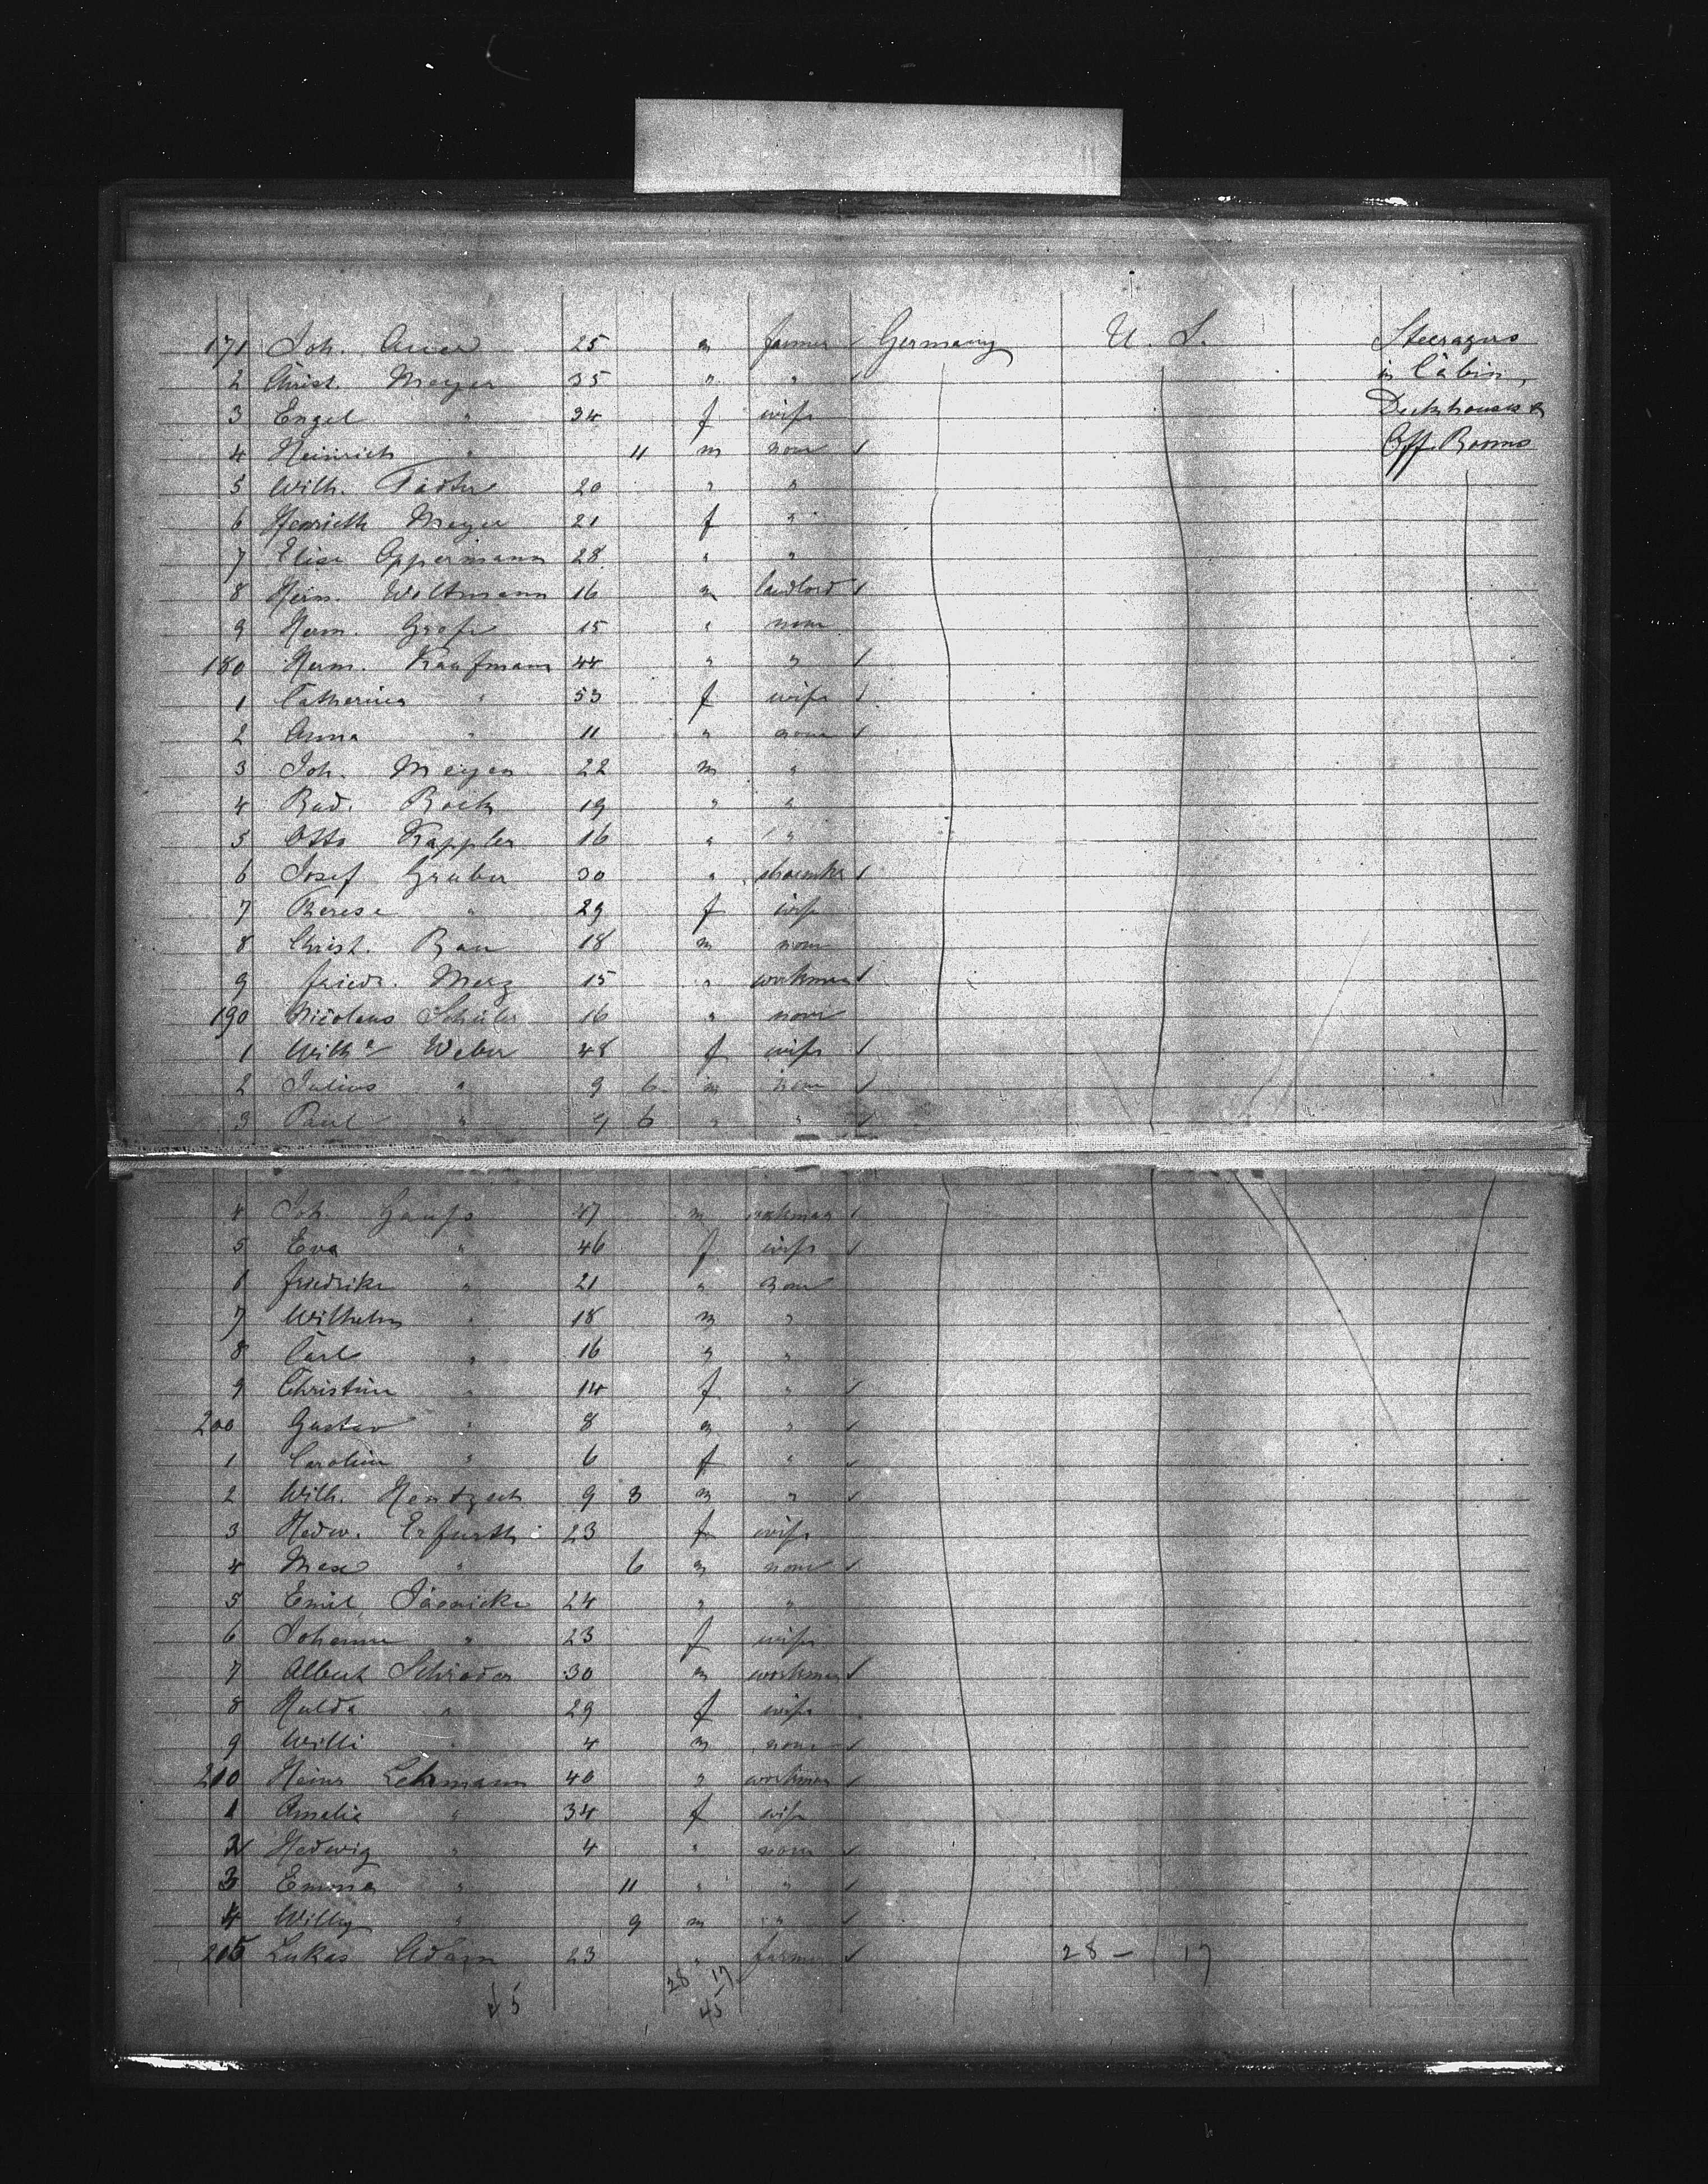 171 Joh. Auer 25 m farmer ✓ Germany U. S. Steerages
2 Christ. Meyer 35 " " ✓ in Cabin,
3 Engel " 34 f wife Deckhouses &
4 Heinrich " 11 m none ✓ Off. Rooms
5 Wilh. 20 " "
6 Henrieth Meyer 21 f "
7 Elise Oppermann 28 " "
8 Herm. Woltmann 16 m landlord ✓
9 Herm. Grefe 15 " none
180 Herm. Kaufmann 44 " " ✓
1 Catherina " 53 f wife ✓
2 Anna " 11 " none ✓
3 Joh. Meyer 22 m "
4 Rud. Bock 19 " "
5 Otto Kappler 16 " "
6 Josef Gruber 30 " shoemkr ✓
7 Therese " 29 f wife
8 Christ. Rau 18 m none
9 Friedr. Merz 15 " workman ✓
190 Nicolaus Schüler 16 " none
1 Wilhe Weber 48 f wife ✓
2 Julius " 9 6 m none ✓
3 Paul " 9 6 " " ✓
4 Joh. Gauss 47 m workman ✓
5 Eva " 46 f wife ✓
6 Friedrike " 21 " none
7 Wilhelm " 18 m "
8 Carl " 16 " "
9 Christine " 14 f " ✓
200 Gustav " 8 m " ✓
1 Caroline " 6 f " ✓
2 Wilh. Hentzsch 9 3 m " ✓
3 Hedw. Erfurth 23 f wife
4 Max " 6 m none ✓
5 Emil Jaenicke 24 " "
6 Johanne " 23 f wife
7 Albert Schrader 30 m workman ✓
8 Hulda " 29 f wife
9 Willi " 4 m none ✓
210 Heinr Lehmann 40 " workman ✓
1 Amelie " 34 f wife
2 Hedwig " 4 " none ✓
3 Emma " 11 " " ✓
4 Willy " 9 m " ✓
215 Lukas Adam 23 " farmer ✓ 28 – 17
28 17
45